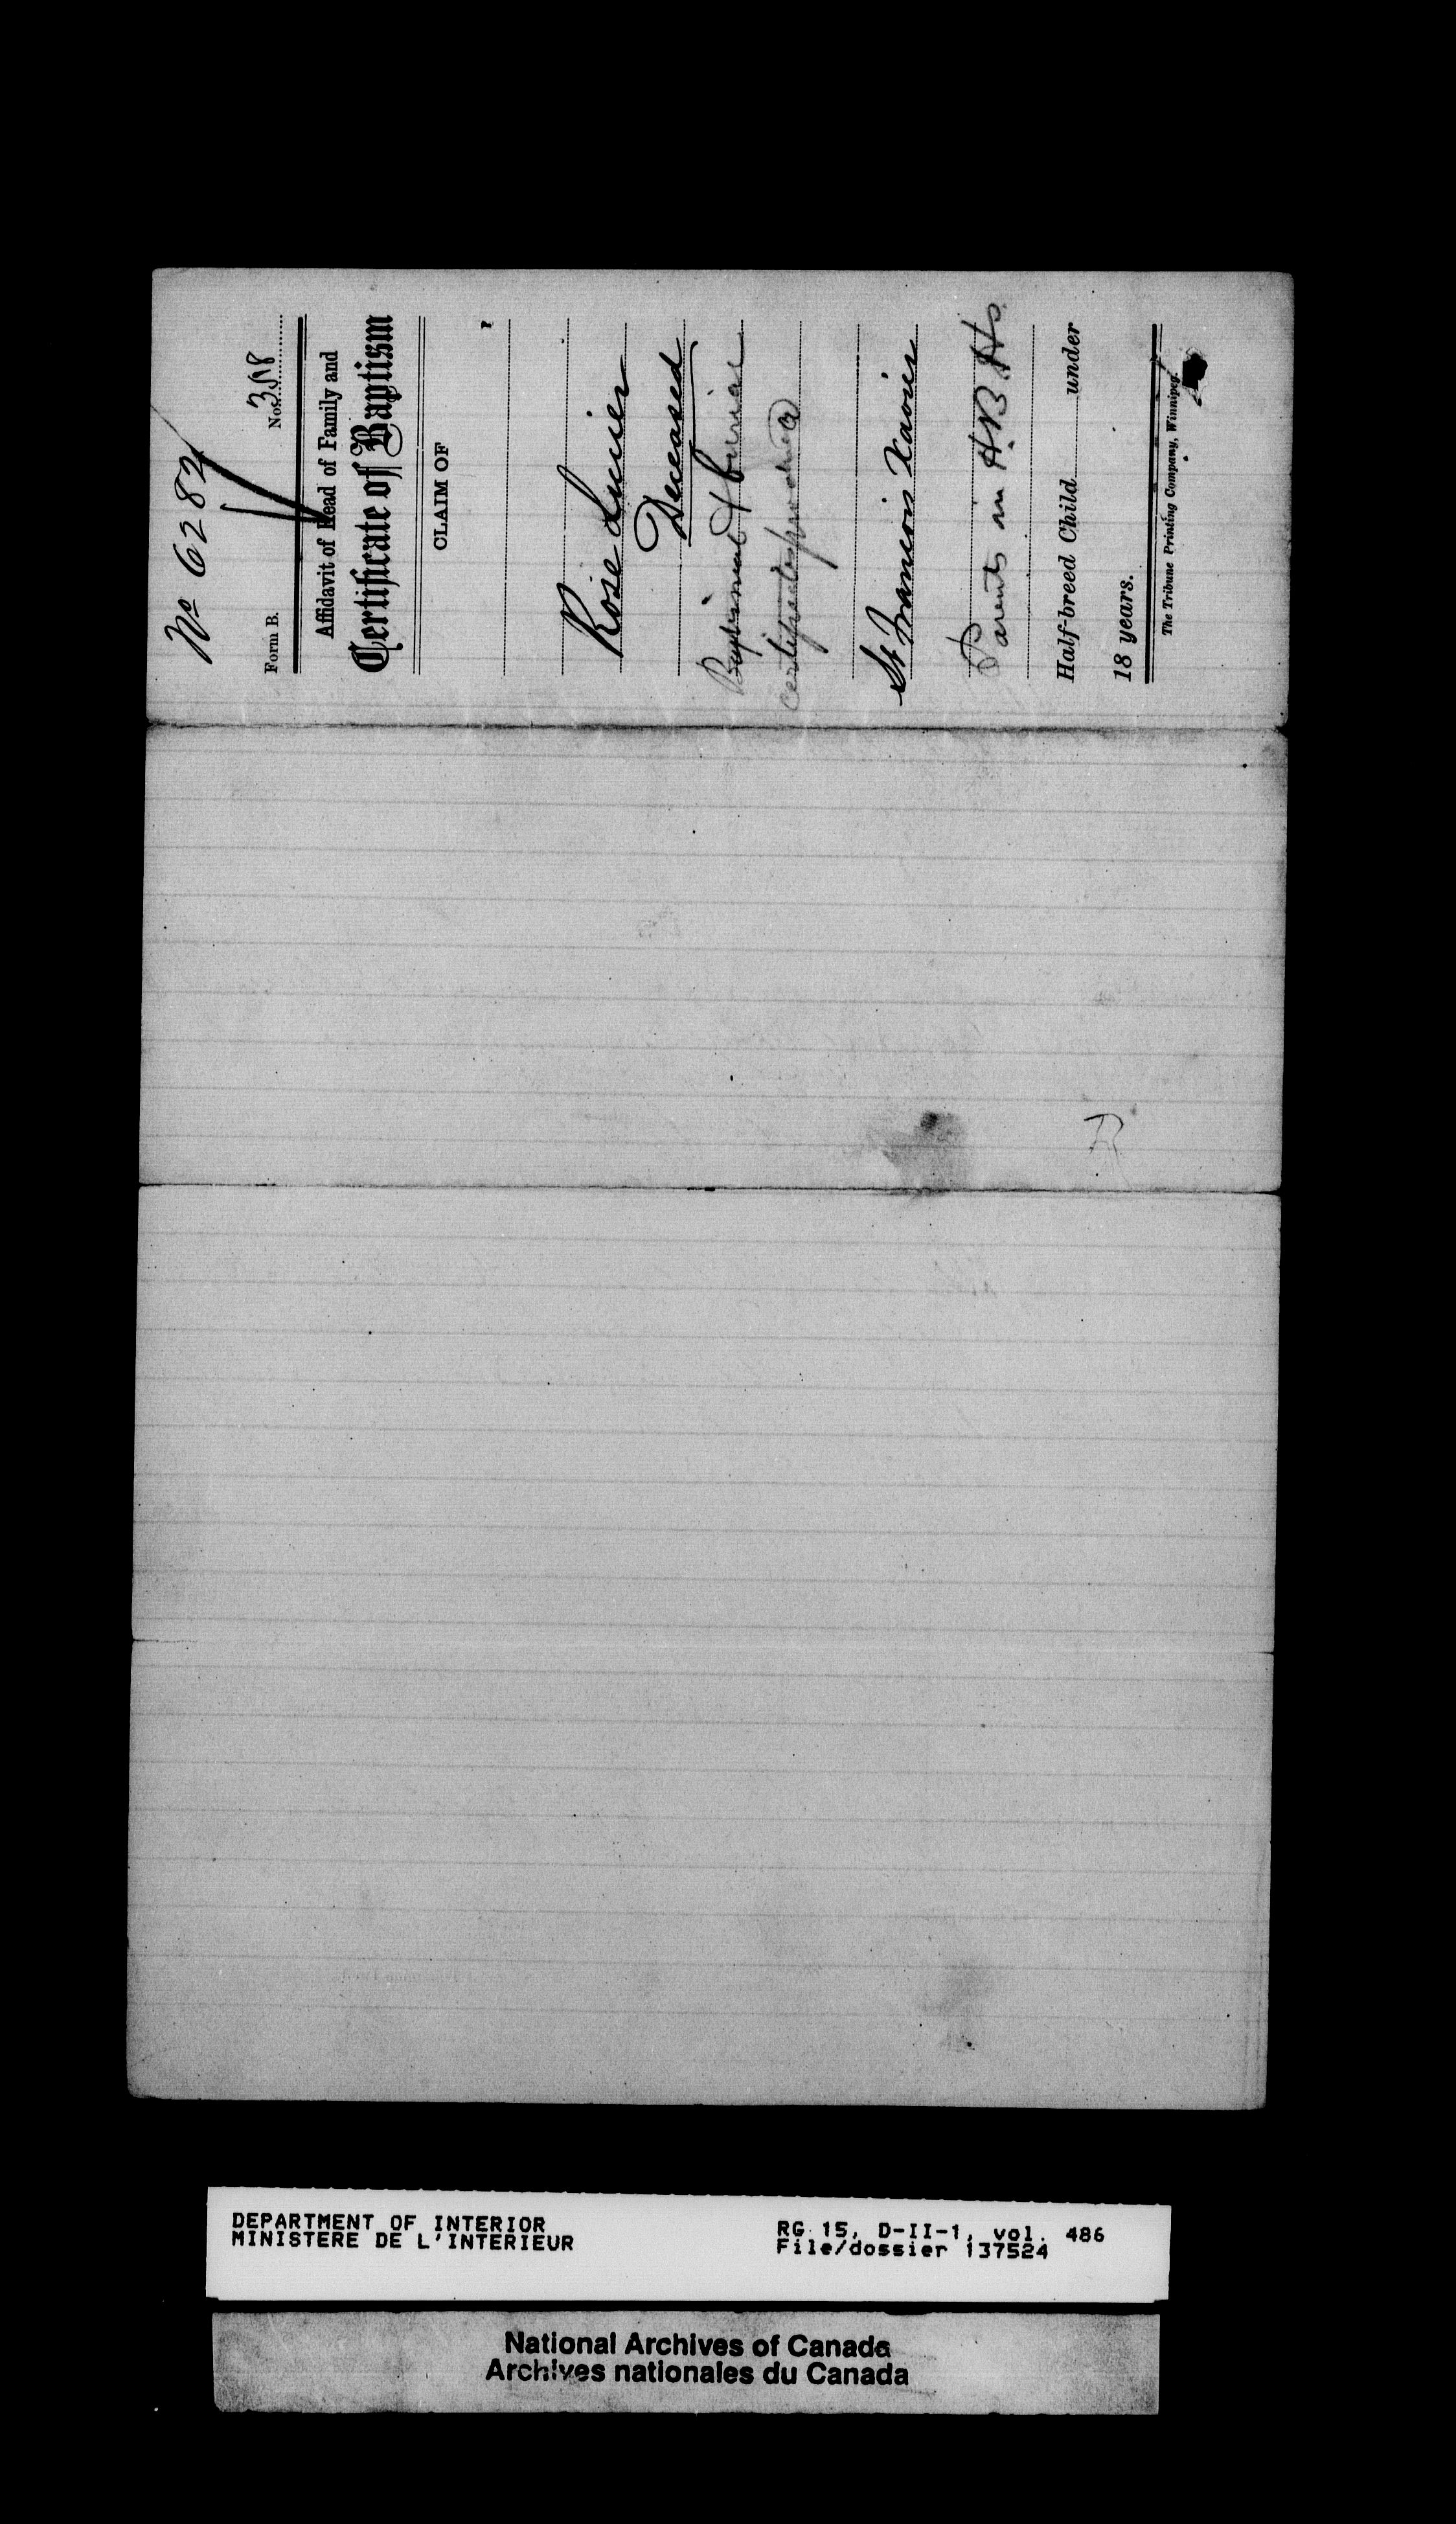 No 6282
Form B. Nos.
Affidavit of Head of Family and
Certificate of Baptism
CLAIM OF
Rose Lucier
Deceased
Baptismal & burial
certificates produced
St Francois Xavier
Parents in H.B. Hs.
Half-breed Child under
18 years.
The Tribune Printing Company, Winnipeg.
DEPARTMENT OF INTERIOR
MINISTERE DE L'INTERIEUR
RG 15, D-II-1, vol. 486
File/dossier 137524
National Archives of Canada
Archives nationales du Canada